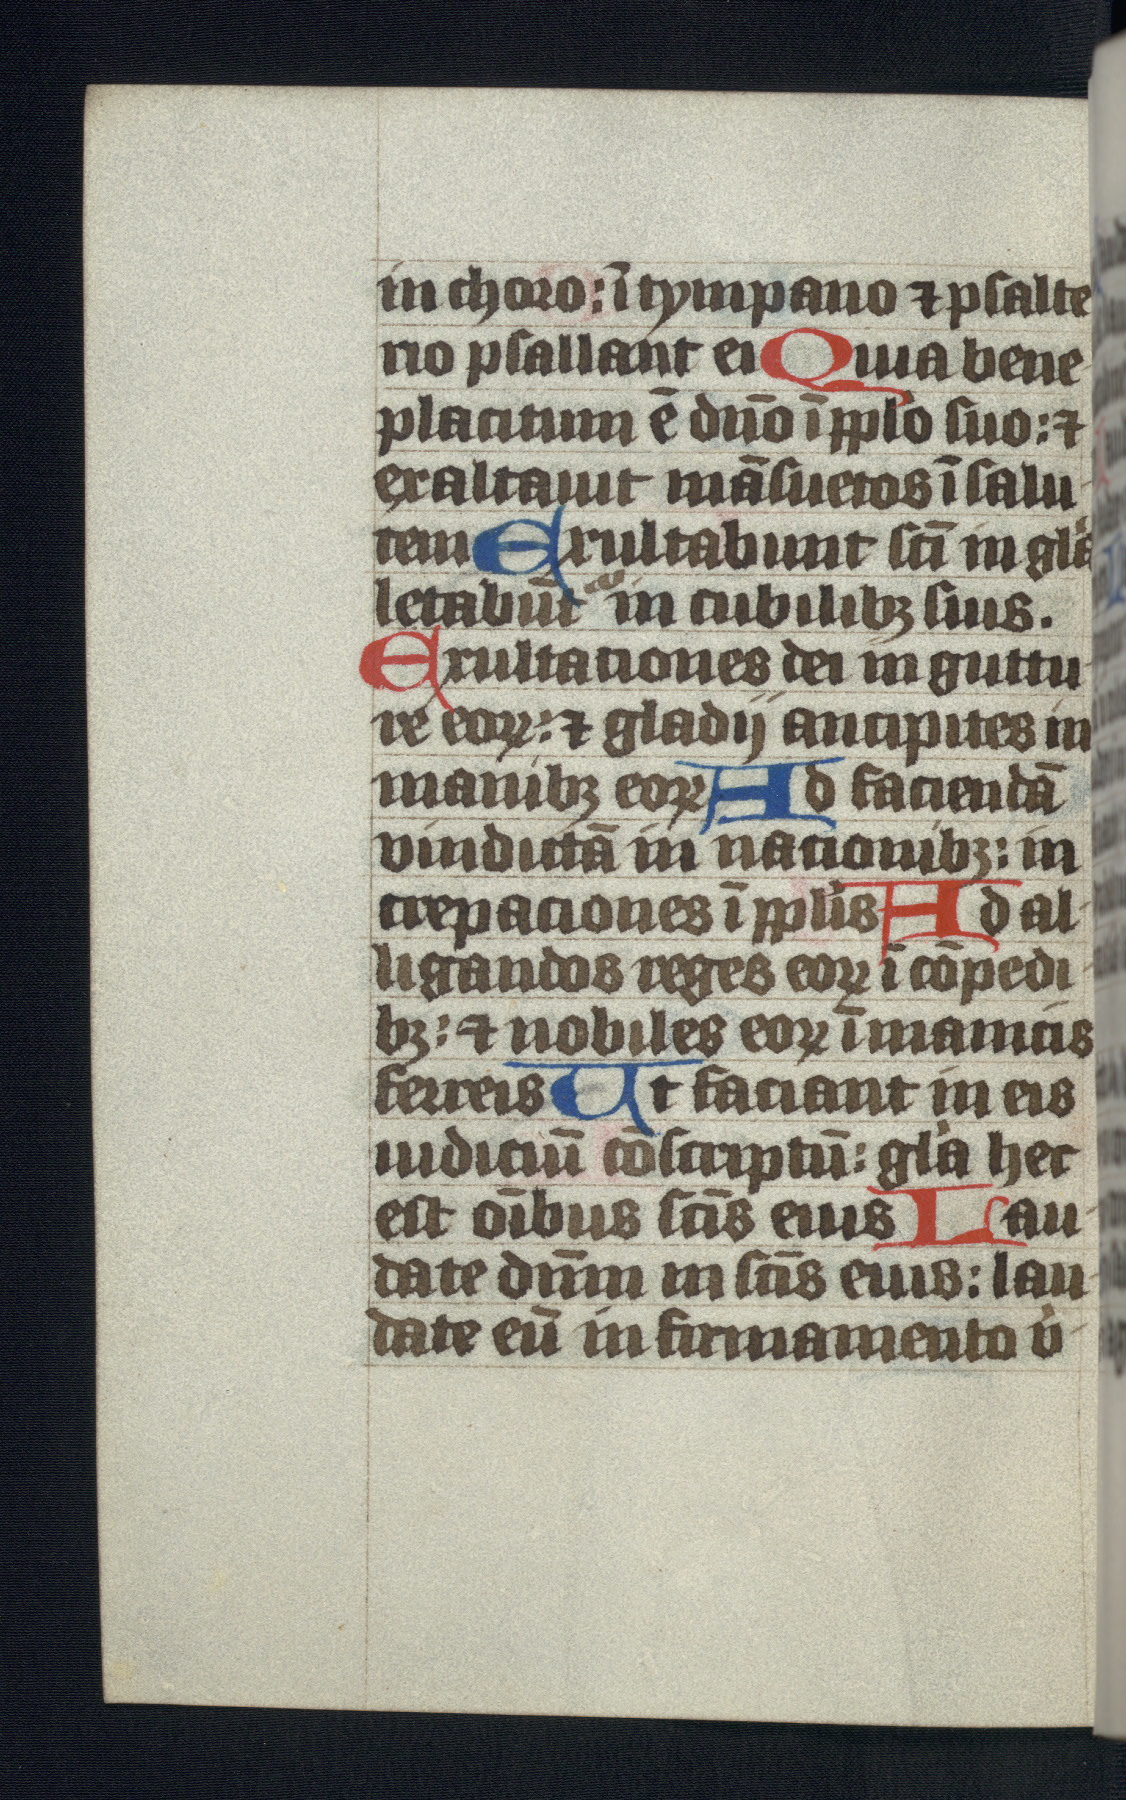 in choro: ī tympano ⁊ psalte
rio psallant ei Quia bene
placitum ē dn̄o ī pplo suo: ⁊
exaltauit māsuetos ī salu
tem Exultabunt sc̄i in gl̄a
letabūt᷑ in cubilibꝫ suis.
Exultationes dei in guttu
re eoꝝ: ⁊ gladij ancipites in
manibꝫ eoꝝ Ad faciendā
vindictā in nationibꝫ: in
crepationes ī ppl̄is Ad al
ligandos reges eoꝝ ī cōpedi
bꝫ: ⁊ nobiles eoꝝ ī manicis
ferreis Ut faciant in eis
iudiciū cōscriptū: gl̄a hec
est oībus sc̄is eius Lau
date dn̄m in sc̄is eius: lau
date eū in firmamento v̾